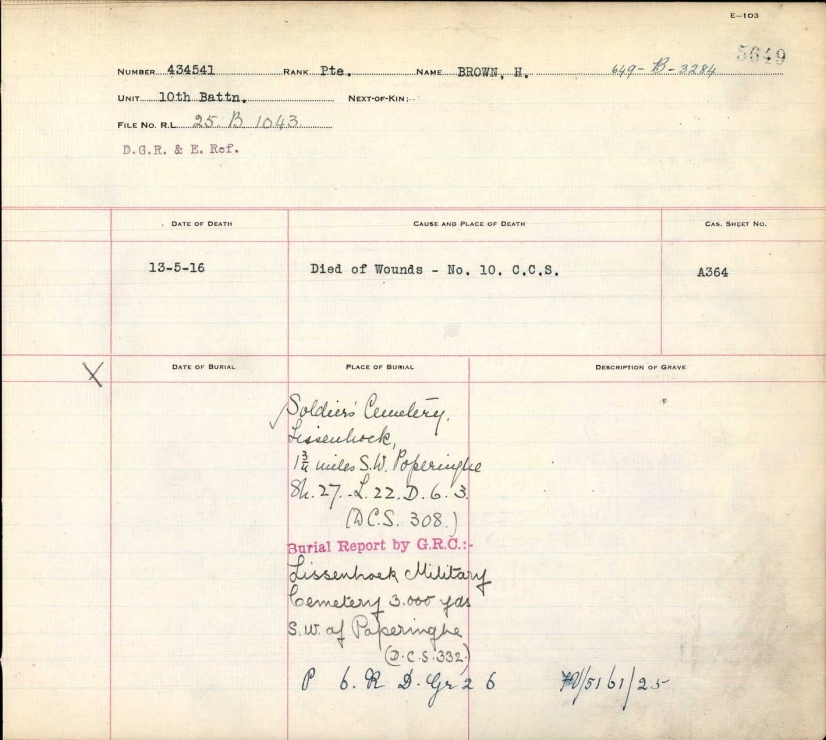 E—103
5649
NUMBER 434541 RANK Pte. NAME BROWN, H. 649-B-3284
UNIT 10th Battn. NEXT-OF-KIN:
FILE NO. R.L. 25. B 1043
D.G.R. & E. Ref.
DATE OF DEATH CAUSE AND PLACE OF DEATH CAS. SHEET NO.
13-5-16 Died of Wounds - No. 10. C.C.S. A364
X DATE OF BURIAL PLACE OF BURIAL DESCRIPTION OF GRAVE
Soldiers' Cemetery.
Lissenhock,
1 3/4 miles S.W. Poperinghe
Sh. 27.-L.22.D.6.3.
(D.C.S. 308.)
Burial Report by G.R.C.:-
Lissenhoek Military
Cemetery 3.000 yds
S.W. of Poperinghe
(D.C.S.332.)
P 6. R D. Gr 2 6 /5161/25